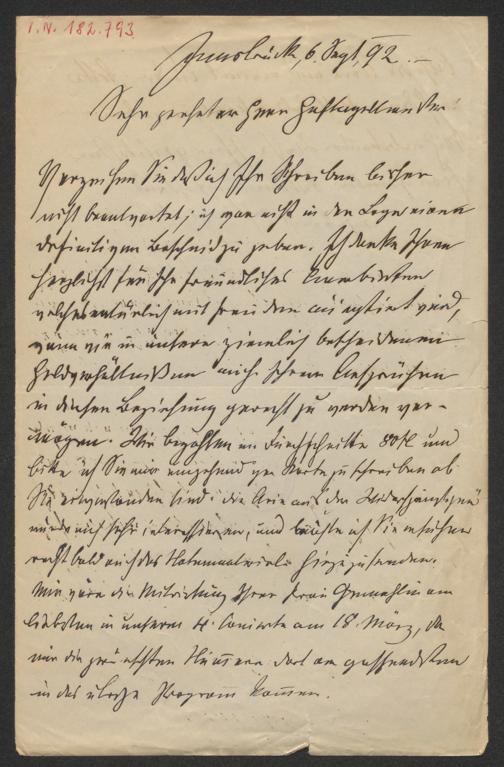 I.N. 182.793
Innsbruck, 6. Sept. 92.
Sehr geehrter Herr Hofkapellmeister!
Verzeihen Sie daß ich Ihr Schreiben bisher
nicht beantwortet; ich war nicht in der Lage einen
definitiven Bescheid zu geben. Ich danke Ihnen
herzlichst für Ihr freundliches Anerbieten
welches natürlich mit Freuden acceptirt wird,
wenn wir in unseren ziemlich bescheidenen
Geldverhältnissen auch Ihren Ansprüchen
in dieser Beziehung gerecht zu werden ver-
mögen. Wir bezahlen im Durchschnitte 80 fl und
bitte ich Sie mir umgehend per Karte zu schreiben ob
Sie einverstanden sind. die Arie aus der Widerspänstigen
würde mich sehr interessieren, und möchte ich Sie ersuchen
recht bald auch das Notenmaterial hieher zu senden.
Mir wäre die Mitwirkung Ihrer Frau Gemahlin am
liebsten in unserem 4. Concerte am 18. März, da
mir die gewünschten Nummern dort am passendsten
in das Programm kommen.